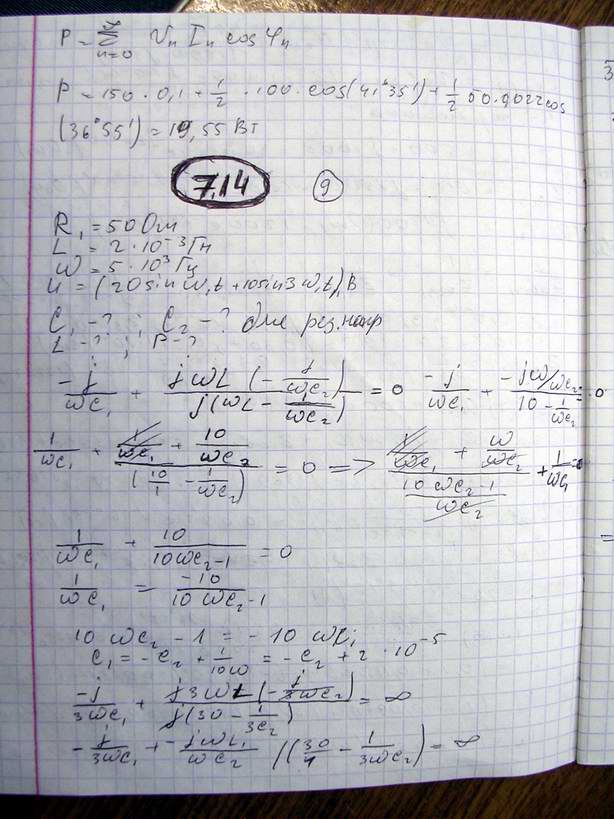 P = ∞∑n=0 Un In cos φn
P = 150 · 0,1 + 1/2 · 100 · cos(41°35') + 1/2 50 · 0022 cos
(36°55') = 19,55 Вт
7.14 9
R1 = 50 Ом
L = 2 · 10^-3 Гн
W = 5 · 10^3 Гц
U = (20 sin W1t + 10 sin 3W1t), В
C1 - ? ; C2 - ? для рез. напр
L - ? ; P - ?
-j/WC1 + jWL(-j/WC2)/j(WL - 1/WC2) = 0 -j/WC1 + -jW/WC2/10 - 1/WC2 = 0
1/WC1 + 1/WC1 + 10/WC2/(10/1 - 1/WC2) = 0 => 1/WC1 + W/WC2/10WC2-1/WC2 + 1/WC1 = 0
1/WC1 + 10/10WC2-1 = 0
1/WC1 = -10/10WC2-1
10WC2 - 1 = -10WC1
C1 = -C2 + 1/10W = -C2 + 2 · 10^-5
-j/3WC1 + j3WL(-j/3WC2)/j(30 - 1/3C2) = ∞
-j/3WC1 + -jWL1/WC2 /(30/4 - 1/3WC2) = ∞